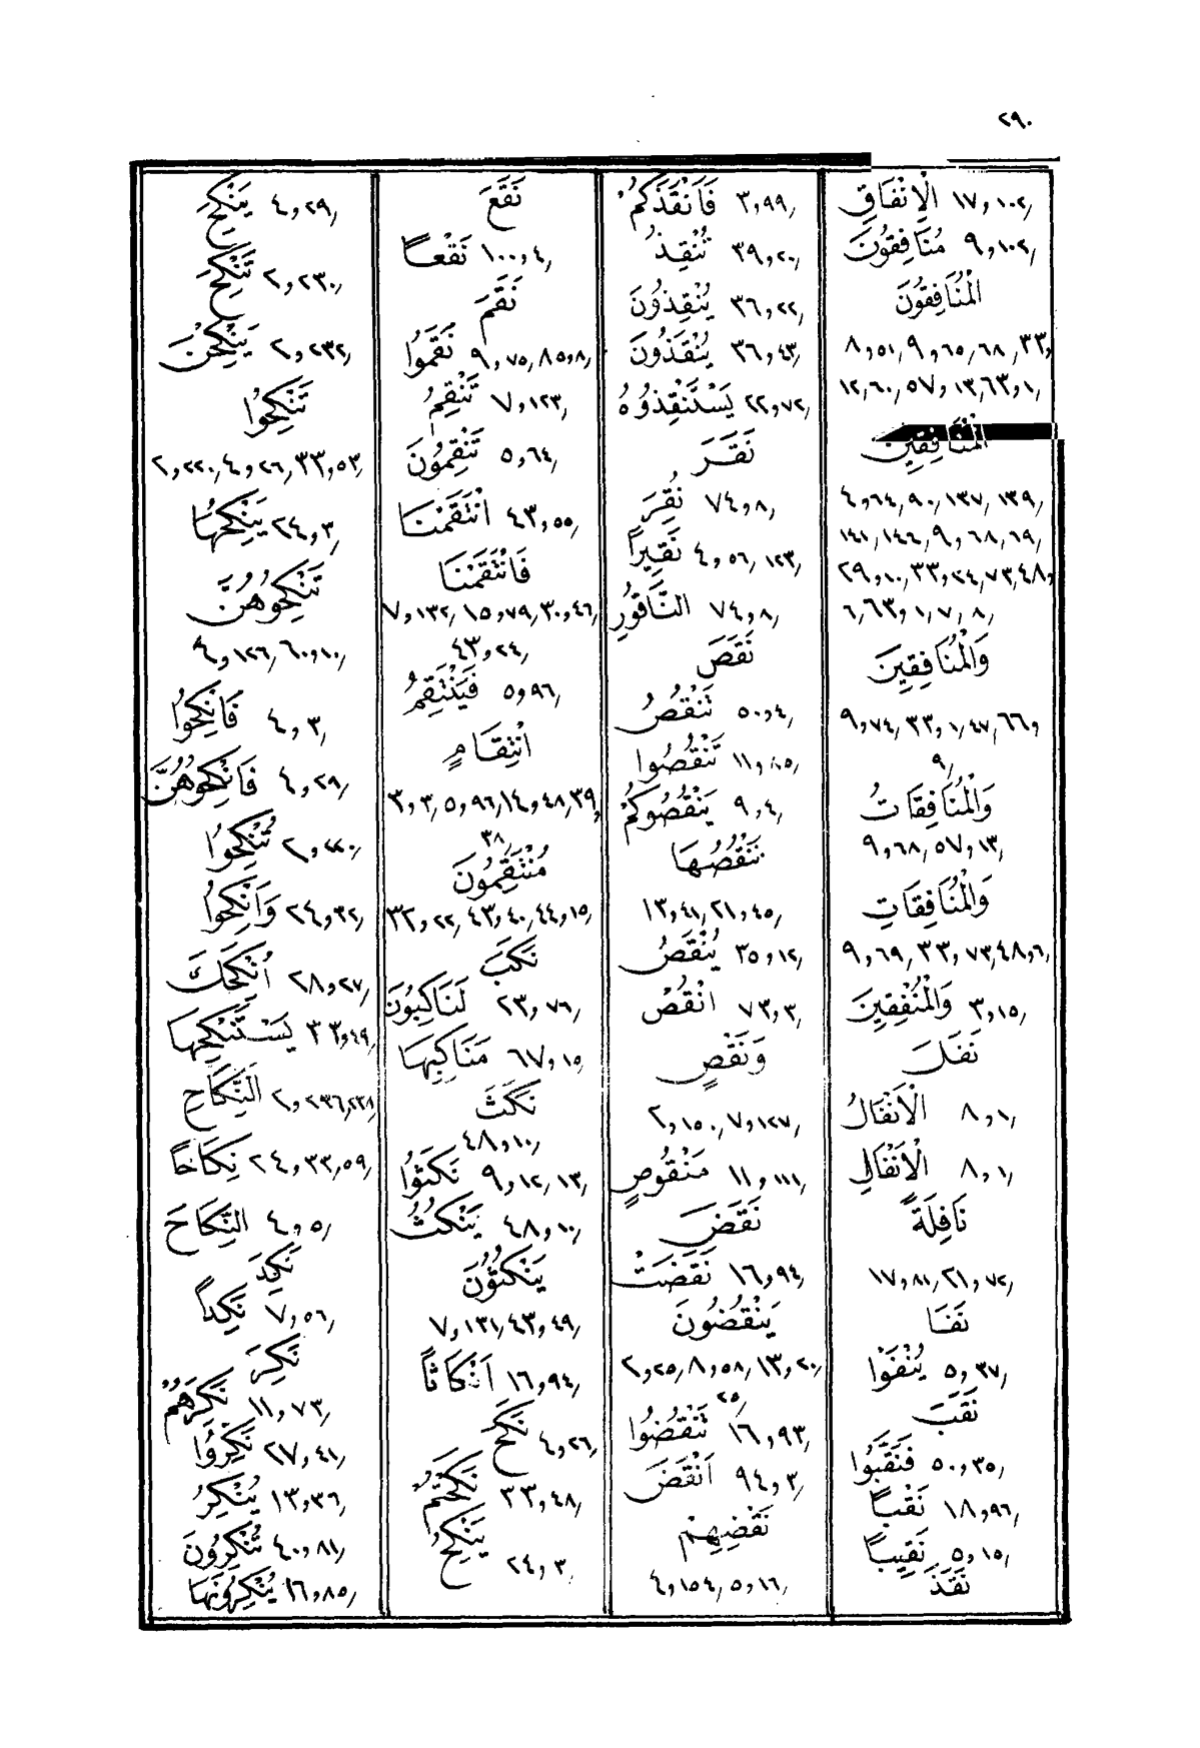 ٢٩٠
الْاِنْفَاقِ ١٧,١٠٢
مُنَافِقُونَ ٩,١٠٢
الْمُنَافِقُونَ
٨,٥١,٩,٦٥,٦٨,٣٣
١٢,٦٠,٥٧,١٣,٦٣,١
الْمُنَافِقِينَ
٤,٦٤,٩٠,١٣٧,١٣٩
١٤١,١٤٦,٩,٦٨,٦٩
٢٩,١٠,٣٣,٢٤,٧٣,٤٨
٦,٦٣,١,٧,٨
وَالْمُنَافِقِينَ
٩,٧٤,٣٣,١,٤٧,٦٦
٩
وَالْمُنَافِقَاتُ
٩,٦٨,٥٧,١٣
وَالْمُنَافِقَاتِ
٩,٦٩,٣٣,٧٣,٤٨,٦
وَالْمُنْفِقِينَ ٣,١٥
نَفَلَ
الْاَنْفَالُ ٨,١
الْاَنْفَالِ ٨,١
نَافِلَةً
١٧,٨١,٢١,٧٢
نَفَا
يُنْفَوْا ٥,٣٧
نَقَبَ
فَنَقَّبُوا ٥٠,٣٥
نَقْباً ١٨,٩٦
نَقِيباً ٥,١٥
نَقَذَ
فَاَنْقَذَكُمْ ٣,٩٩
تُنْقِذُ ٣٩,٢٠
يُنْقِذُونَ ٣٦,٢٢
يُنْقَذُونَ ٣٦,٤٣
يَسْتَنْقِذُوهُ ٢٢,٧٢
نَقَرَ
نُقِرَ ٧٤,٨
نَقِيراً ٤,٥٦,١٢٣
النَّاقُورِ ٧٤,٨
نَقَصَ
تَنْقُصُ ٥٠,٤
تَنْقُصُوا ١١,٨٥
يَنْقُصُوكُمْ ٩,٤
نَنْقُصُهَا
١٣,٤١,٢١,٤٥
يُنْقَصُ ٣٥,١٢
انْقُصْ ٧٣,٣
وَنَقْصٍ
٢,١٥٠,٧,١٢٧
مَنْقُوصٍ ١١,١١١
نَقَضَ
نَقَضَتْ ١٦,٩٤
يَنْقُضُونَ
٢,٢٥,٨,٥٨,١٣,٢٠
٢٥
تَنْقُضُوا ١٦,٩٣
اَنْقَضَ ٩٤,٣
نَقْضِهِمْ
٤,١٥٤,٥,١٦
نَقَعَ
نَقْعاً ١٠٠,٤
نَقَمَ
نَقَمُوا ٩,٧٥,٨٥,٨
تَنْقِمُ ٧,١٢٣
تَنْقِمُونَ ٥,٦٤
انْتَقَمْنَا ٤٣,٥٥
فَانْتَقَمْنَا
٧,١٣٢,١٥,٧٩,٣٠,٤٦
٤٣,٢٤
فَيَنْتَقِمُ ٥,٩٦
انْتِقَامٍ
٣,٣,٥,٩٦,١٤,٤٨,٣٩
٣٨
مُنْتَقِمُونَ
٣٢,٢٢,٤٣,٤٠,٤٤,١٥
نَكَبَ
لَنَاكِبُونَ ٢٣,٧٦
مَنَاكِبِهَا ٦٧,١٥
نَكَثَ
٤٨,١٠
نَكَثُوا ٩,١٢,١٣
يَنْكُثُ ٤٨,١٠
يَنْكُثُونَ
٧,١٣١,٤٣,٤٩
اَنْكَاثاً ١٦,٩٤
نَكَحَ ٤,٢٦
نَكَحْتُمُ ٣٣,٤٨
يَنْكِحُ ٢٤,٣
يَنْكِحَ ٤,٢٩
تَنْكِحَ ٢,٢٣٠
يَنْكِحْنَ ٢,٢٣٢
تَنْكِحُوا
٢,٢٢٠,٤,٢٦,٣٣,٥٣
يَنْكِحُهَا ٢٤,٣
تَنْكِحُوهُنَّ
٤,١٢٦,٦٠,١٠
فَانْكِحُوا ٤,٣
فَانْكِحُوهُنَّ ٤,٢٩
تُنْكِحُوا ٢,٢٢٠
وَاَنْكِحُوا ٢٤,٣٢
اُنْكِحَكَ ٢٨,٢٧
يَسْتَنْكِحَهَا ٣٣,٤٩
النِّكَاحِ ٢,٢٣٦,٢٣٨
نِكَاحاً ٢٤,٣٣,٥٩
النِّكَاحَ ٤,٥
نَكِدَ
نَكِداً ٧,٥٦
نَكِرَ
نَكِرَهُمْ ١١,٧٣
نَكِّرُوا ٢٧,٤١
يُنْكِرُ ١٣,٣٦
تُنْكِرُونَ ٤٠,٨١
يُنْكِرُونَهَا ١٦,٨٥